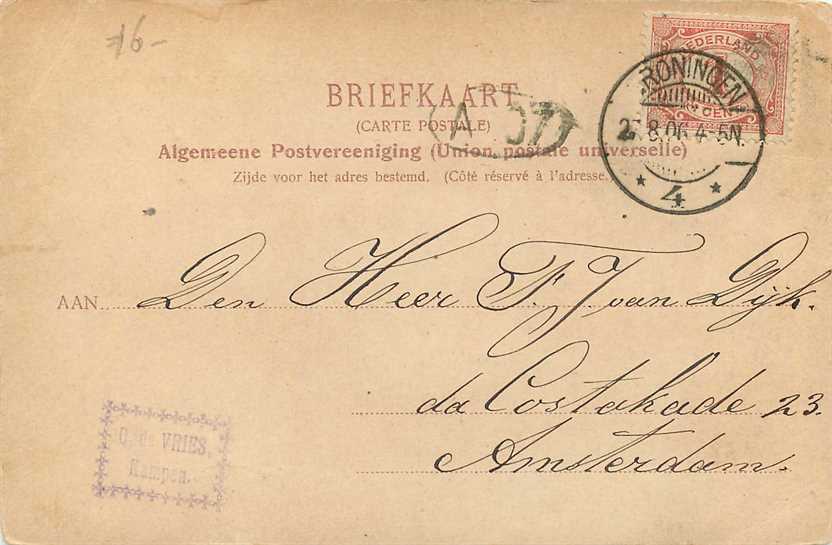 16-
NEDERLAND
GRONINGEN
BRIEFKAART
(CARTE POSTALE)
A 07
8.06. 4-5N.
4
Algemeene Postvereeniging (Union postale universelle)
Zijde voor het adres bestemd. (Côté réservé à l'adresse.)
AAN Den Heer F. J. van Dijk.
da Costakade 23.
Amsterdam.
VRIES,
Kampen.